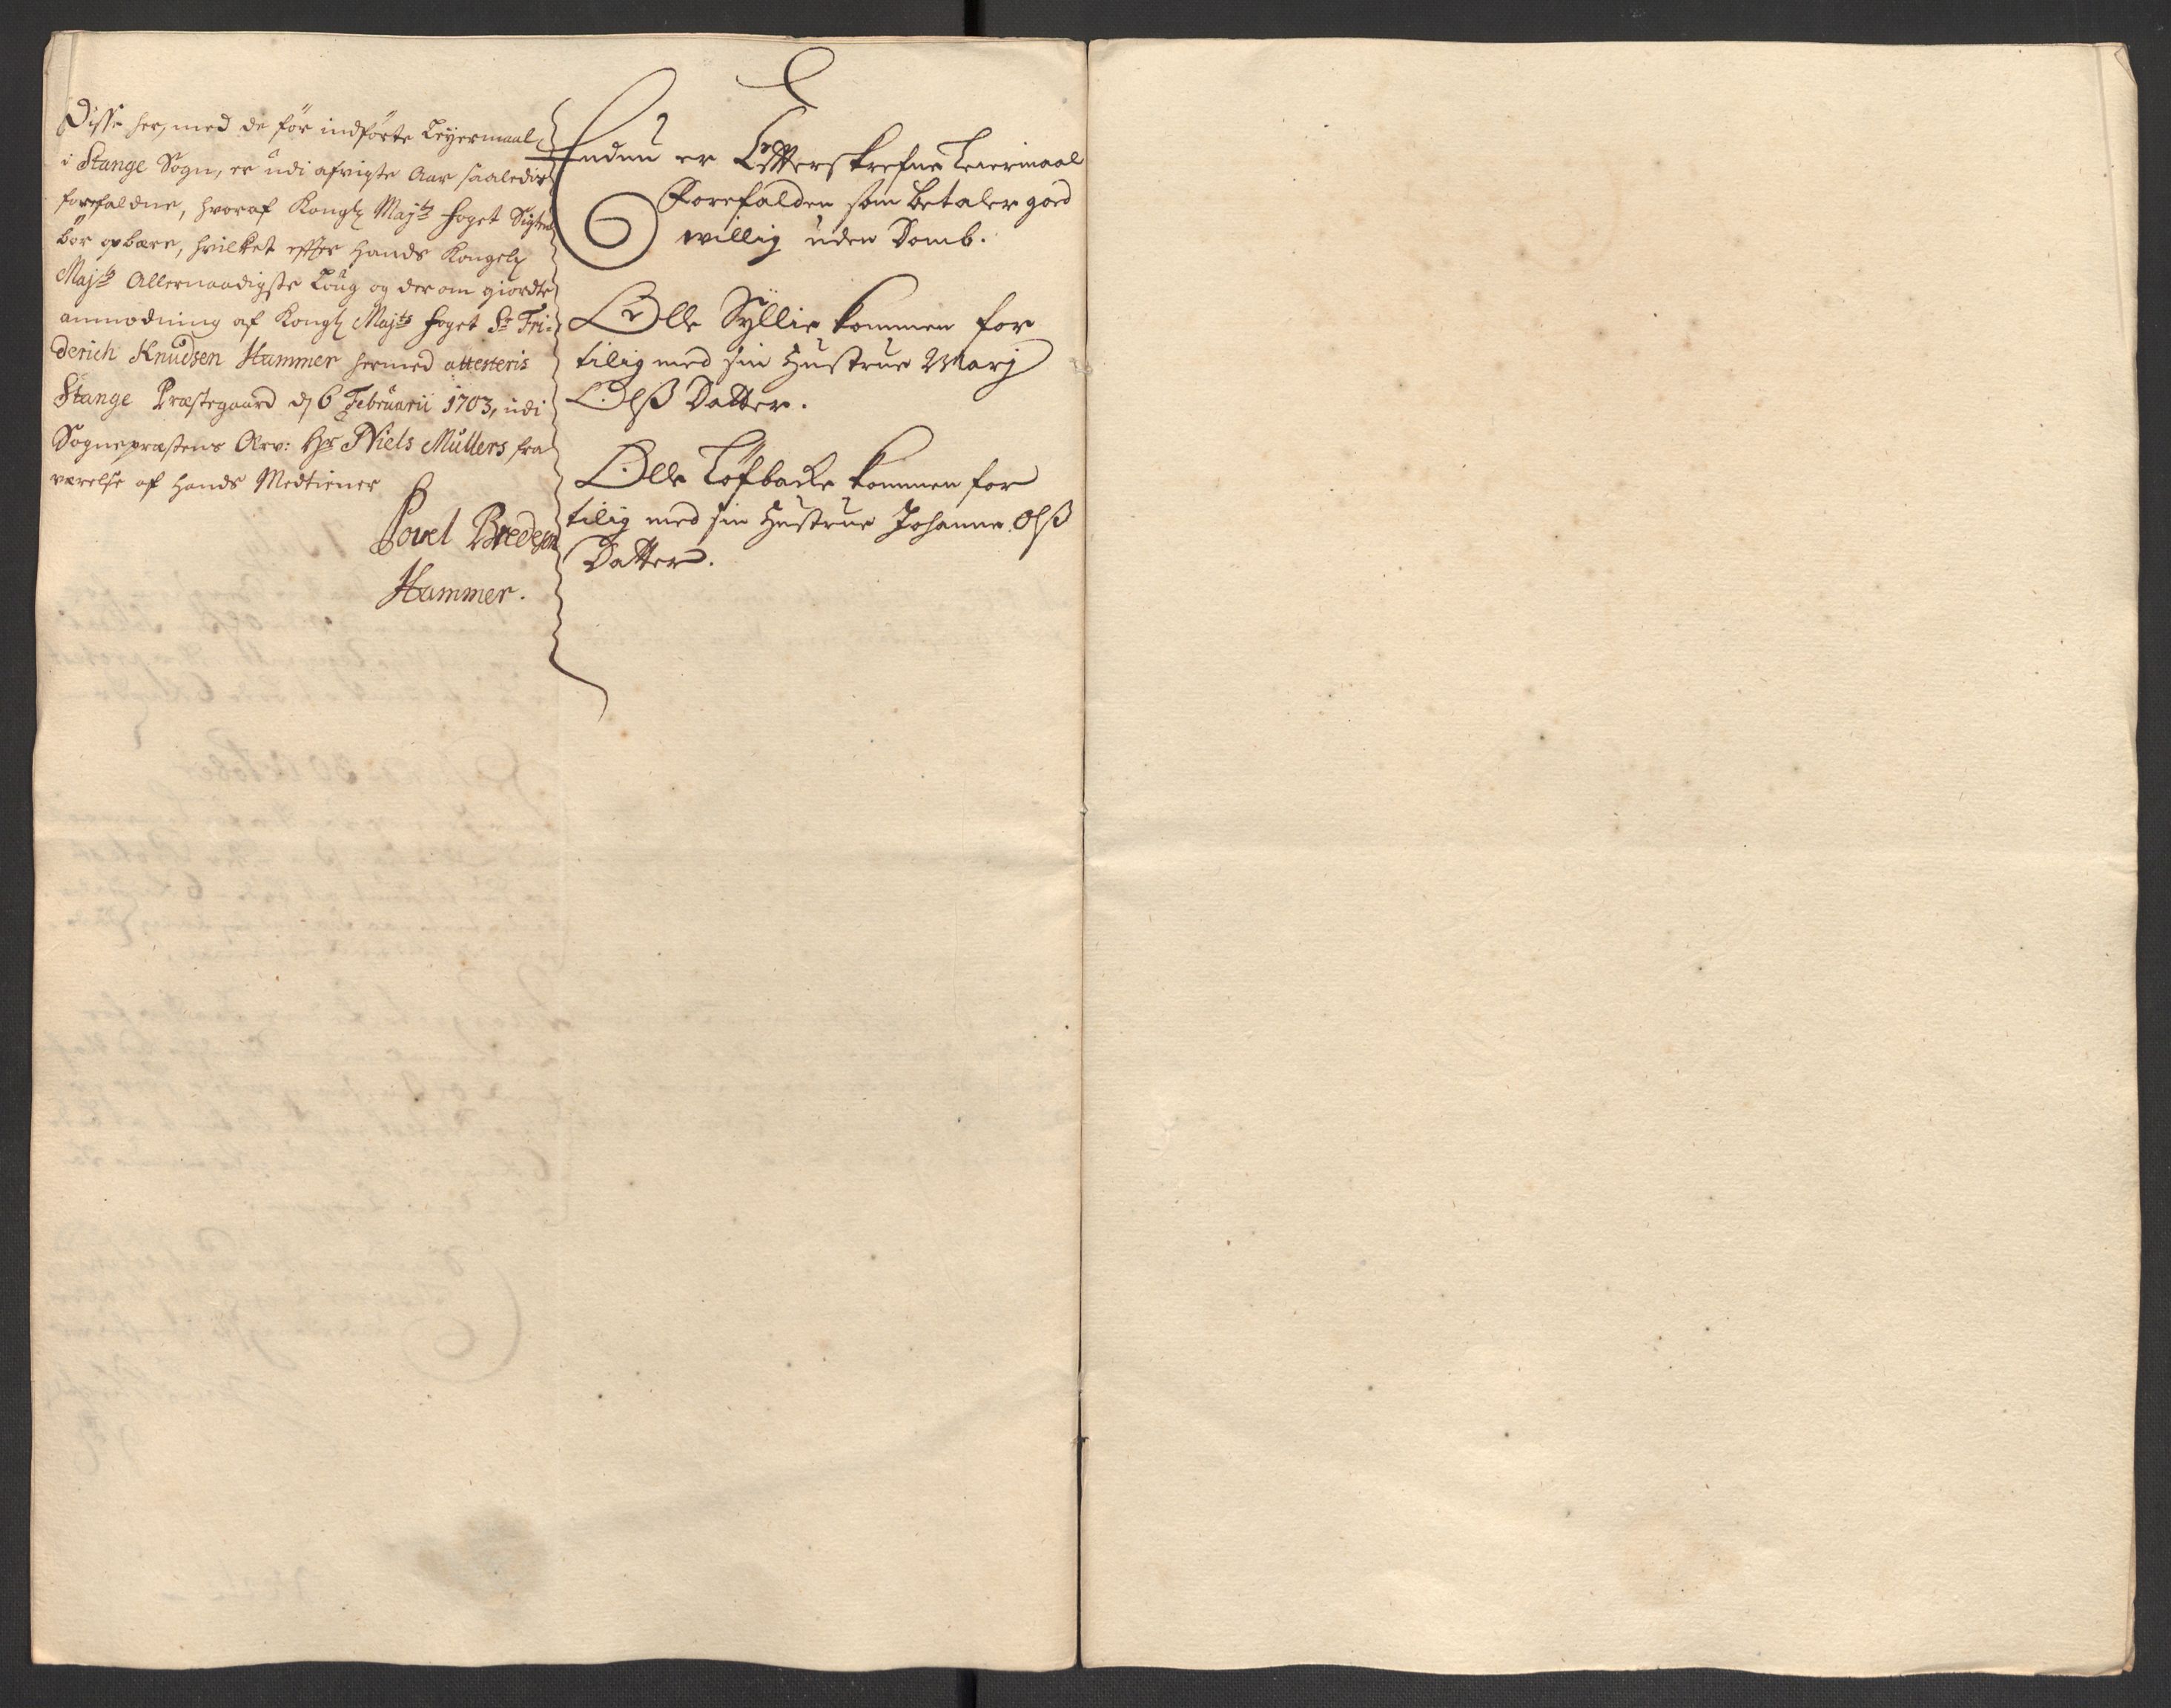 Disse her, med de för indförte Leyermaal
i Stange Sogn, er udi afvigte Aar saaledis
forefaldne, hvoraf Kongl Maj.ts foget Sigten
bör opbære, hvilket effter Hands Kongel
Maj.ts Allernaadigste Loug og der om giordte
anmodning af Kongl Maj.ts foget Sr Fri-
derich Knudsen Hammer hermed attesteris
Stange Præstegaard d 6 Februarii 1703, udi
Sognepræstens Hr Niels Müllers fra
værelse af Hands Medtiener
Povel Bredesen
Hammer.
Endnu er Effterskrefne Leiermaal
Forefalden som betaler goed
willig uden Domb.
Olle Syllie kommen for
tilig med sin Hustrue Marj
Olß Datter.
Olle Löfbacke kommen for
tilig med sin Hustrue Johanne Olß
Datter.